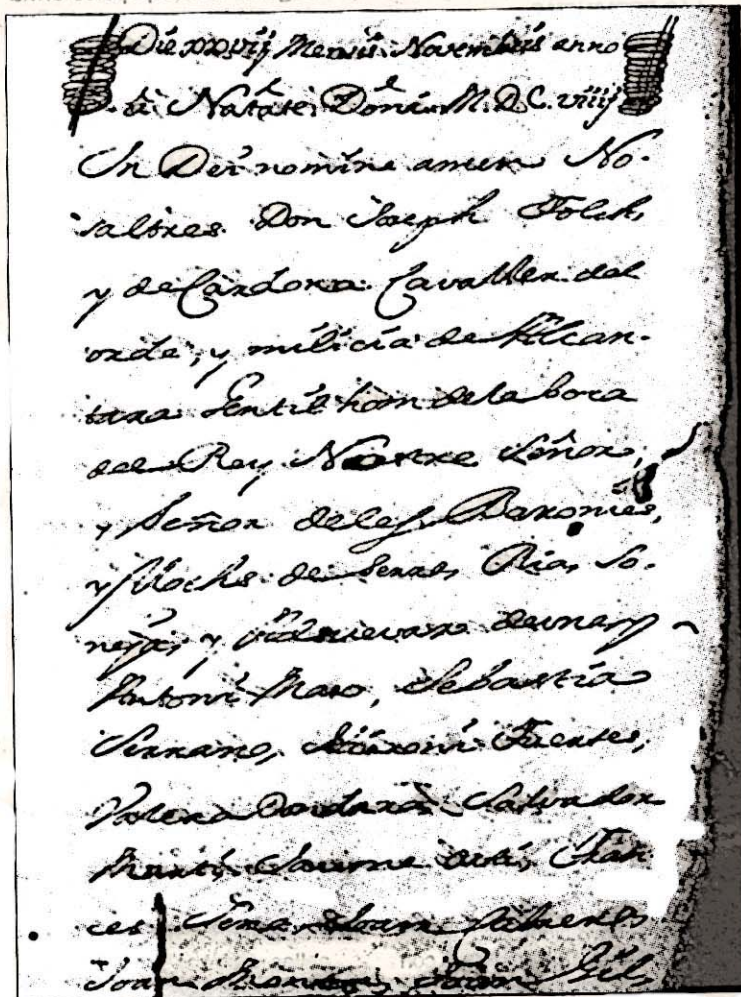 Die xxvij Mensis Novembris anno
a Nate Dni M.D.C.viiij
In Dei nomine amen No-
saltres Don Joseph Folch,
y de Cardona Cavaller del
orde, y milicia de Alcan-
tara Gentil hom de la boca
del Rey Nostre Señor,
y Señor de les Baronies,
y llochs de Serra, Ria, So-
neja, y de una
Antoni Maro, Sebastia
Serrano, Hieroni Fuertes,
Valero Dandara Salvador
Marti Jaume Fran
ces Joan
Joan Joan Gil